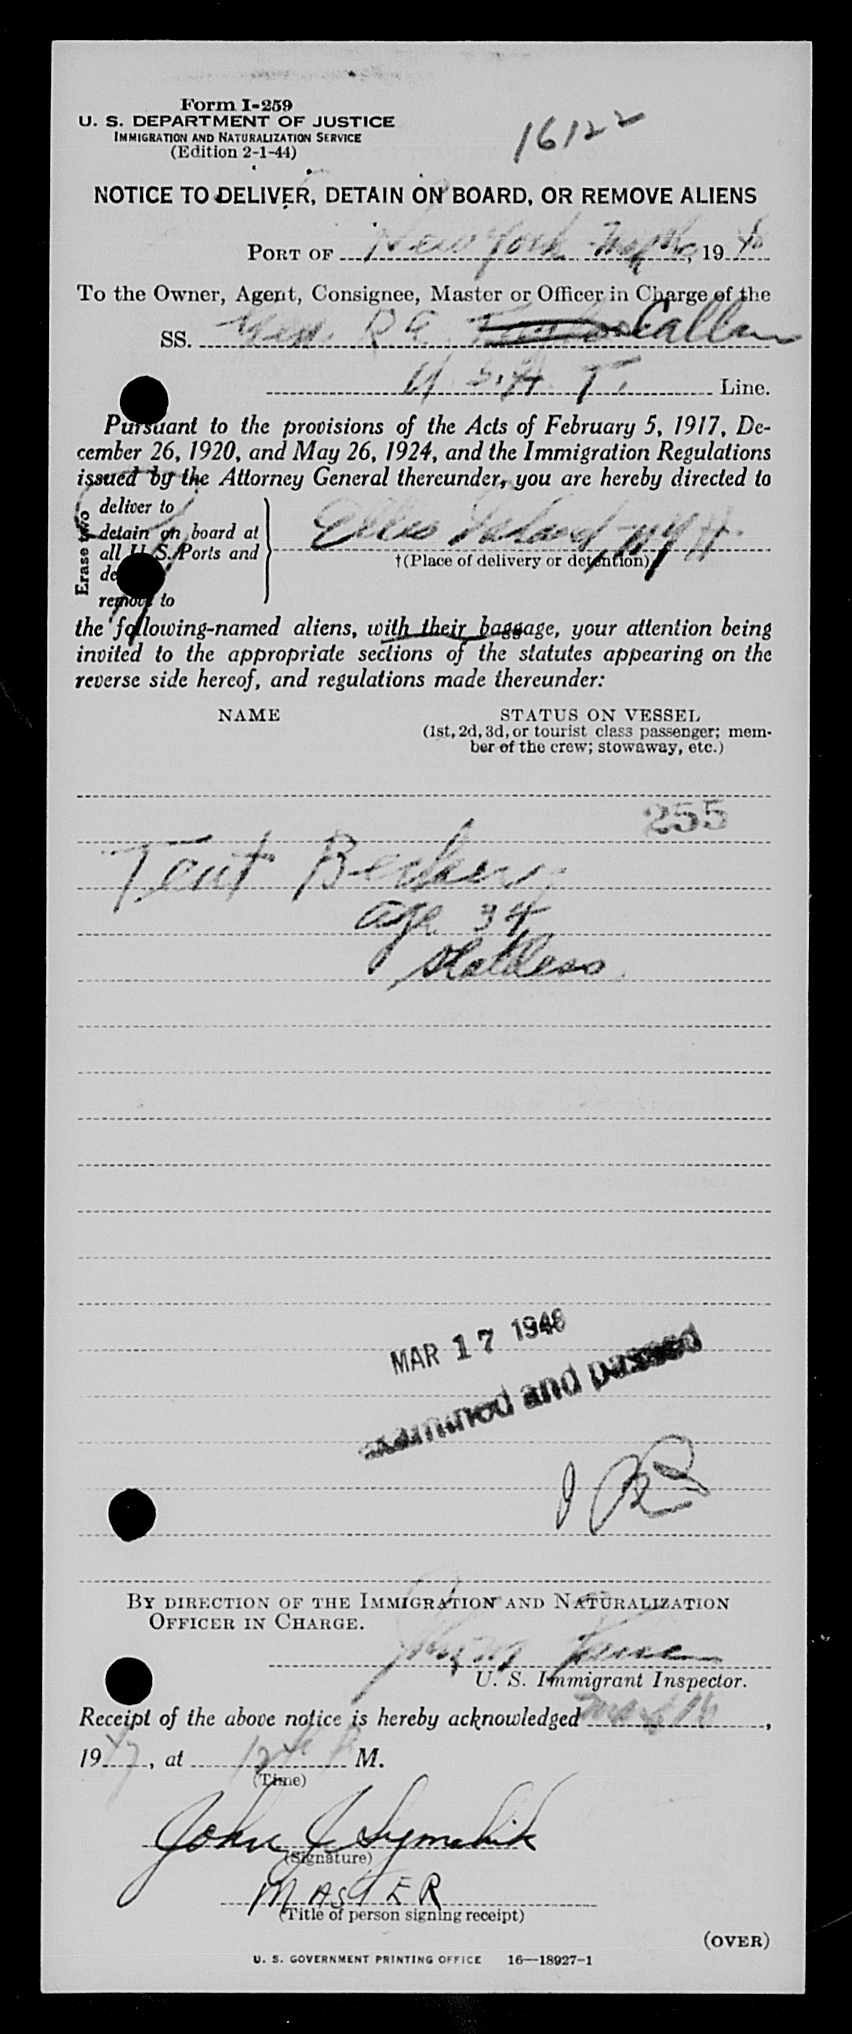 Form I-259
U. S. DEPARTMENT OF JUSTICE
IMMIGRATION AND NATURALIZATION SERVICE
(Edition 2-1-44)
16122
NOTICE TO DELIVER, DETAIN ON BOARD, OR REMOVE ALIENS
PORT OF New York 19
To the Owner, Agent, Consignee, Master or Officer in Charge of the
SS. Gen. R E Callan
U. S. A. T. Line.
Pursuant to the provisions of the Acts of February 5, 1917, De-
cember 26, 1920, and May 26, 1924, and the Immigration Regulations
issued by the Attorney General thereunder, you are hereby directed to
Erase two
deliver to
detain on board at
all U. S. Ports and
remove to
Ellis Island, NYH
†(Place of delivery or detention)
the following-named aliens, with their baggage, your attention being
invited to the appropriate sections of the statutes appearing on the
reverse side hereof, and regulations made thereunder:
NAME
STATUS ON VESSEL
(1st, 2d, 3d, or tourist class passenger; mem-
ber of the crew; stowaway, etc.)
255
Age 34
Stateless
MAR 17 1948
examined and passed
BY DIRECTION OF THE IMMIGRATION AND NATURALIZATION
OFFICER IN CHARGE.
U. S. Immigrant Inspector.
Receipt of the above notice is hereby acknowledged ,
19 , at M.
(Time)
John J
(Signature)
MASTER
(Title of person signing receipt)
(OVER)
U. S. GOVERNMENT PRINTING OFFICE 16—18927-1